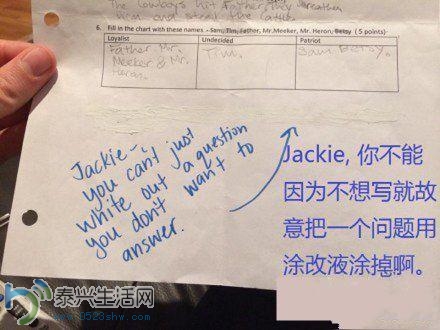 The Cowboys hit Father, they
and steal the cattle
6. Fill in the chart with these names - Sam, Tim, Father, Mr.Meeker, Mr. Heron, Betsy ( 5 points)
Loyalist Undecided Patriot
Father Mr. Tim. Sam Betsy.
Meeker & Mr.
Heron.
Jackie-
you can't just
white out a question
you don't want to
answer.
Jackie, 你不能
因为不想写就故
意把一个问题用
涂改液涂掉啊。
泰兴生活网
www.0523shw.com